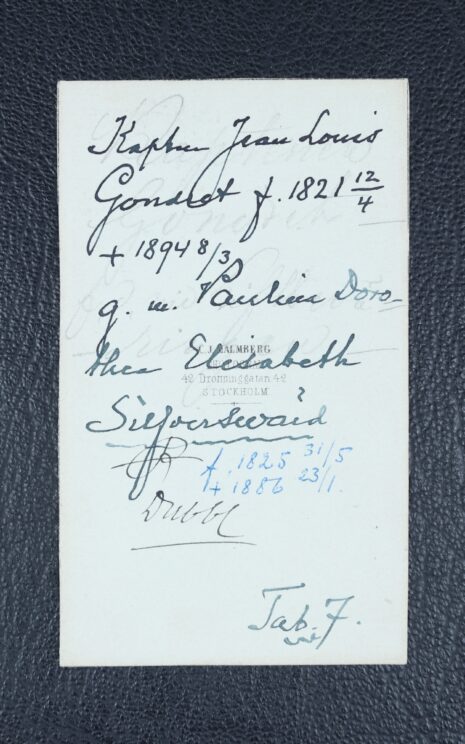 Kapten Jean Louis
Gondret f. 1821 12/4
+ 1894 8/3
g. m. Paulina Doro-
thea Elisabeth
C.J. MALMBERG
42 Drottninggatan 42
STOCKHOLM
?
Silfverswärd
f. 1825 31/5
+ 1886 23/1.
Dubbl
Tab. 7.